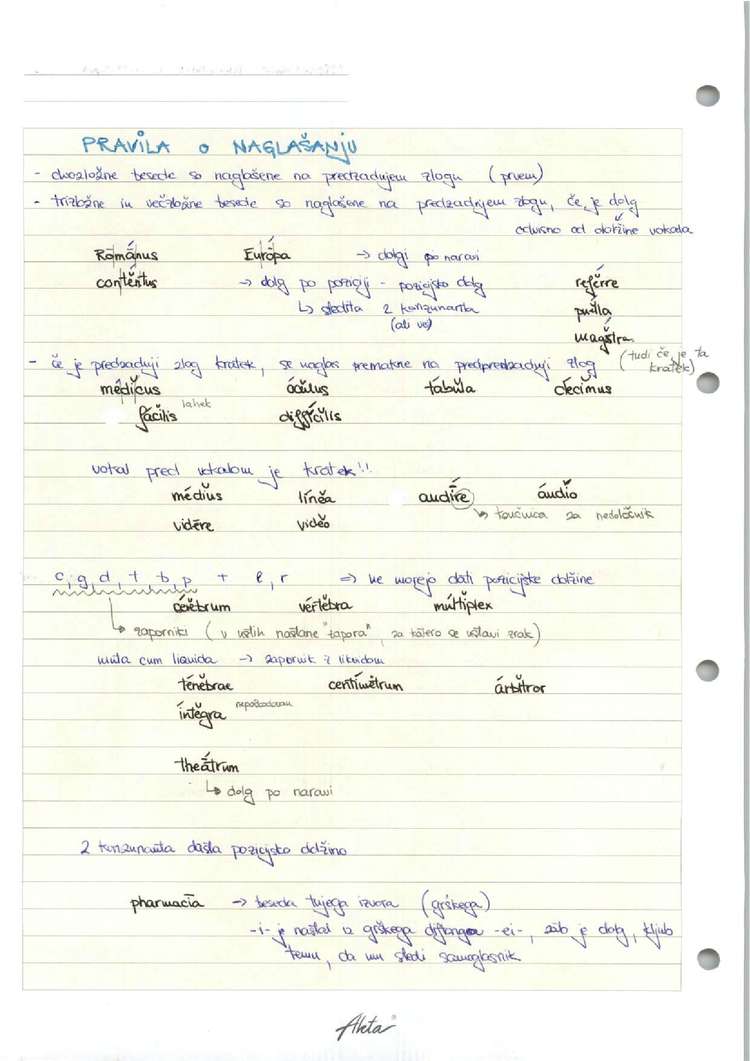 PRAVILA O NAGLAŠANJU
- dvozložne besede so naglašene na predzadnjem zlogu (prvem)
- trizložne in večzložne besede so naglašene na predzadnjem zlogu, če je dolg
odvisno od dolžine vokala
Románus Európa → dolgi po naravi
conténtus → dolg po poziciji - pozicijsko dolg reférre
↳ sledita 2 konzunanta puélla
(ali več) magístra
- če je predzadnji zlog kratek, se naglas premakne na predpredzadnji zlog (tudi če je ta kratek)
médĭcus ócŭlus tábŭla décĭmus
fácĭlis lahek diffícĭlis
vokal pred vokalom je kratek!!
médĭus línĕa audíre áudĭo
↳ končnica za nedoločnik
vidēre vidĕo
c, g, d, t, b, p + l, r ⇒ ne morejo dati pozicijske dolžine
cérĕbrum vértĕbra múltĭplex
↳ zaporniki (v ustih nastane "zapora", za katero se ustavi zrak)
muta cum liquida → zapornik z likvidom
ténĕbrae centímĕtrum árbĭtror
íntĕgra nepoškodovan
theátrum
↳ dolg po naravi
2 konzunanta dasta pozicijsko dolžino
pharmacīa → beseda tujega izvora (grškega)
-i- je nastal iz grškega diftonga -ei-, zato je dolg, kljub
temu, da mu sledi samoglasnik
Aleta